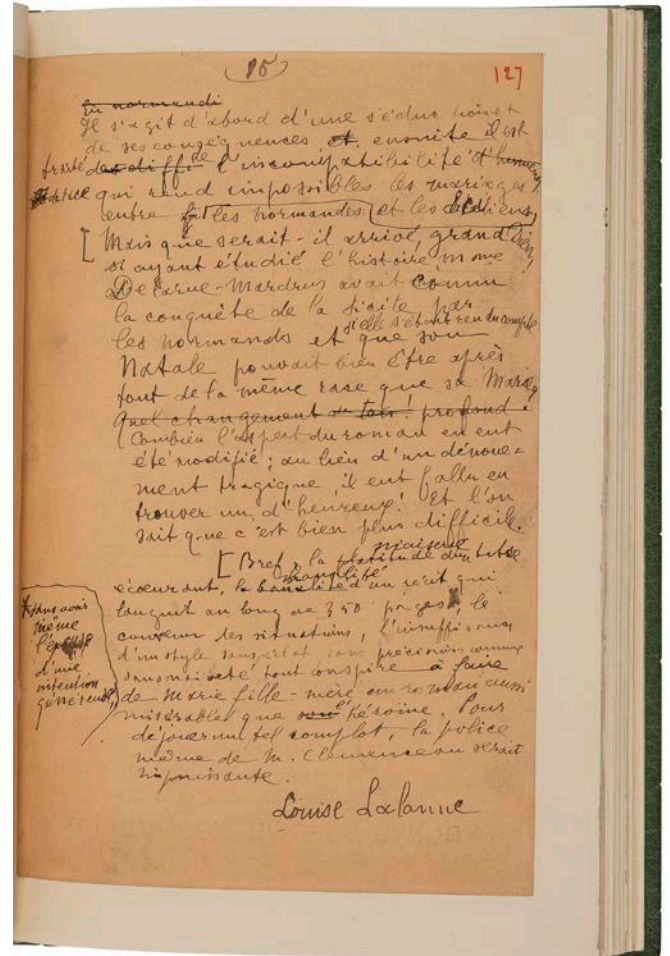 15
127
En normandi
Il s'agit d'abord d'une séduction et
de ses conséquences et, ensuite il est
traité des diffi de l'incompatibilité d'humeur
qui rend impossibles les mariages
entre les normandes et les Siciliens,
[ Mais que serait-il arrivé, grand Dieu,
si ayant étudié l'histoire Mme
Delarue-Mardrus avait connu
la conquête de la Sicile par
les normands et si elle s'était rendu compte que son
Natale pouvait bien être après
tout de la même race que sa Marie,
Quel changement de ton! profond.
Combien l'aspect du roman en eut
été modifié; au lieu d'un dénoue=
ment tragique, il eut fallu en
trouver un d'heureux! Et l'on
sait que c'est bien plus difficile.
[ Bref, la platitude niaiserie d'un titre
écœurant, la banalité d'un récit qui
languit au long de 350 pages, le
convenu des situations, l'insuffisance
d'un style sans éclat sans précision comme
sans naïveté tout conspire à faire
de Marie fille-mère un roman aussi
misérable que son l'héroïne. Pour
déjouer un tel complot, la police
même de M. Clemenceau serait
impuissante.
Louise Lalanne
sans avoir
même
l'excuse
d'une
intention
généreuse,